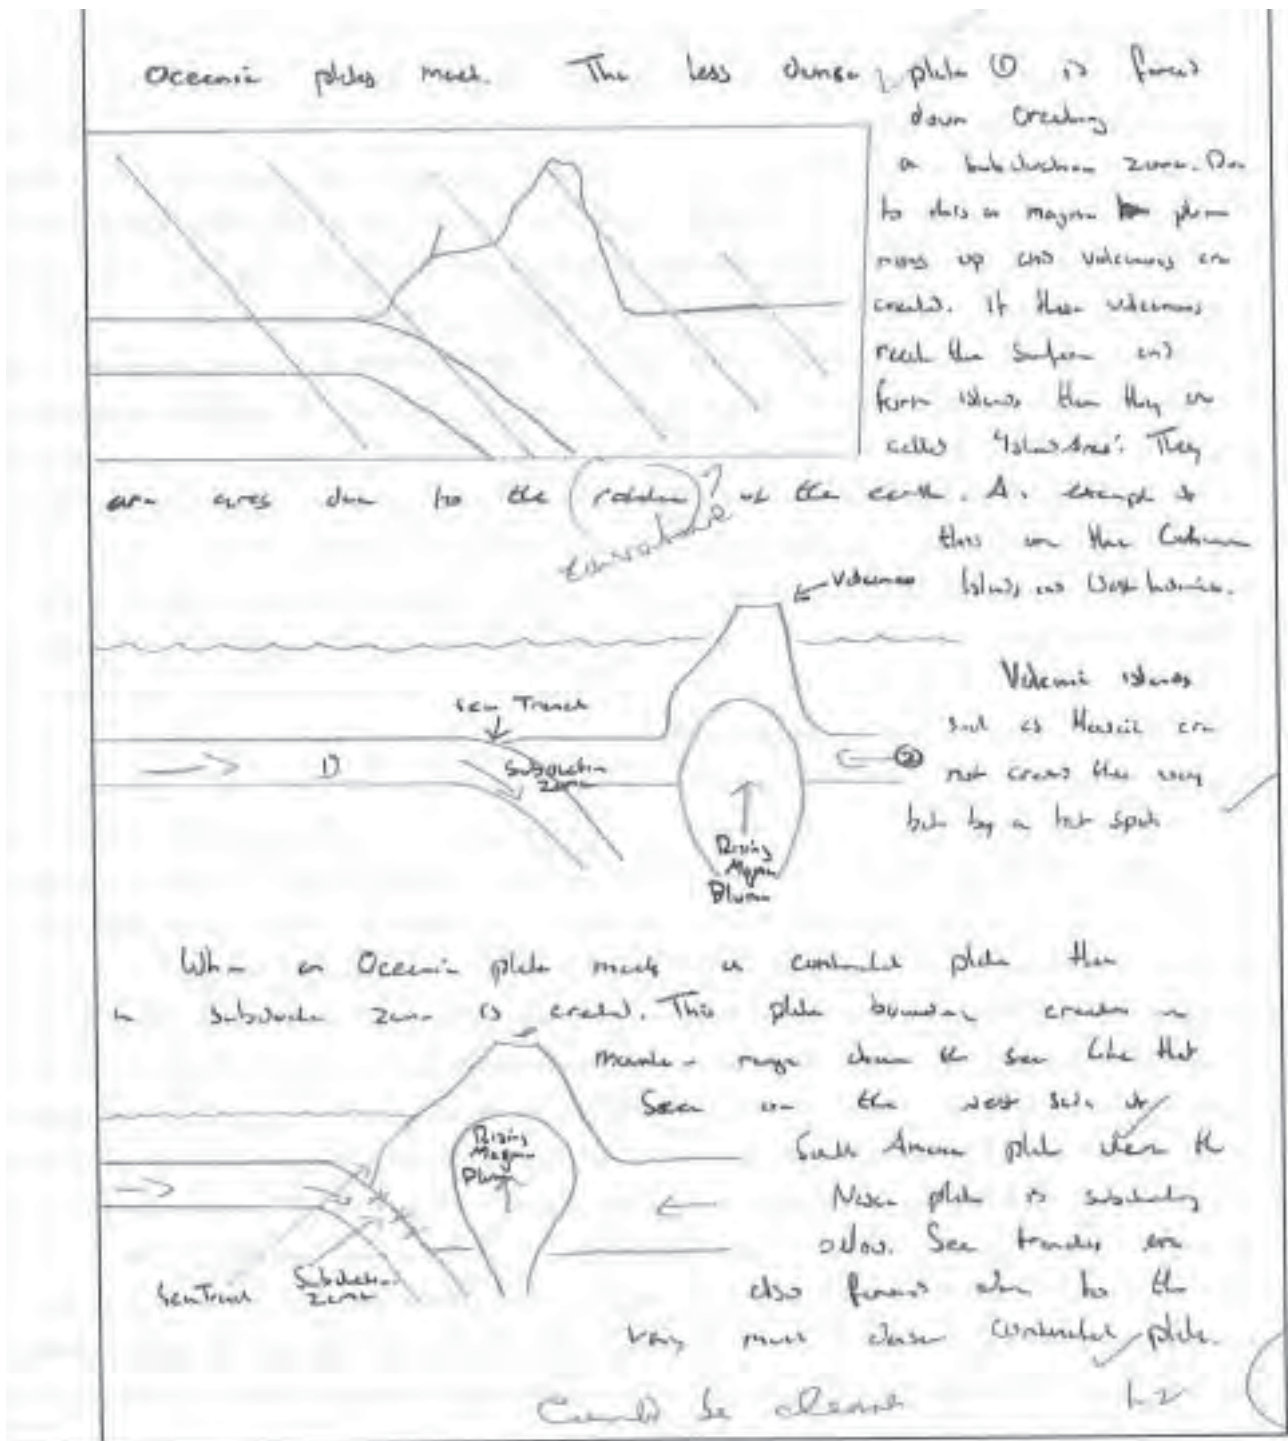 Oceanic plates meet. The less dense, plate ① is forced
down creating
a subduction zone. Due
to this a magma plume
rises up and volcanoes are
created. If these volcanoes
reach the surface and
form islands then they are
called "Island Arcs". They
are arcs due to the rotation ? of the earth. An example of
curvature
this are the
Islands and West
Volcanoes
Volcanic islands
such as Hawaii are
not created this way
but by a hot spot
Sea Trench
1)
Subduction
Zone
②
Rising
Magma
Plume
When an Oceanic plate meets a continental plate then
a subduction zone is created. This plate boundary creates a
mountain range down the sea like that
seen on the west side of
South America plate where the
Nazca plate is subducting
below. Sea trenches are
also formed due to the
very much denser continental plate.
Rising
Magma
Plume
Sea Trench
Subduction
Zone
Could be clearer
L2